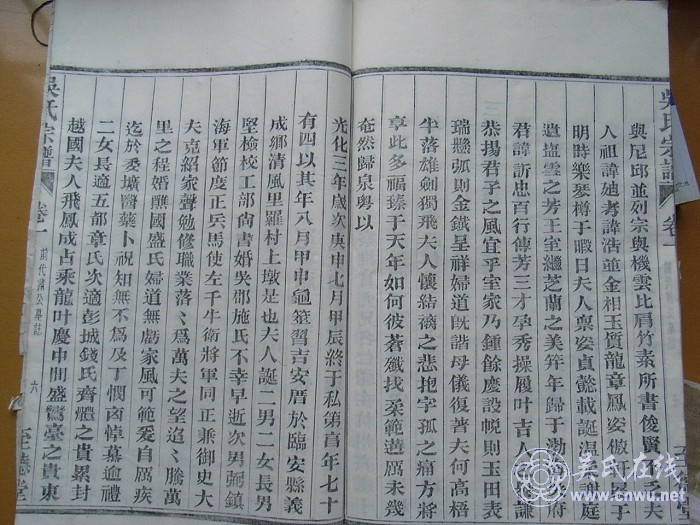 與尼邱並列宗與機雲比肩竹素所書俊賢
人祖諱她考諱浩並金相玉質龍章鳳姿假
明時樂琴樽于暇日夫人稟姿貞懿載誕溫
遺塩雲之芳王室繼芝蘭之美笄年歸于渤
君諱訢忠百行傅芳三才孕秀操履叶吉人
恭揚君子之風宜乎室家乃鍾餘慶設帨則玉田表
瑞懸弧則金鐵呈祥婦道旣諧母儀復著夫何高梧
半落雄劍獨飛夫人懷結褵之悲抱字孤之痛方將
享此多福臻于天年如何彼蒼殲找柔範遘厲未幾
奄然歸泉粤以
光化三年歲次庚申七月甲辰終于私第享年七十
有四以其年八月甲申龜筮習吉安厝於臨安縣義
成鄉清風里羅村上墩是也夫人誕二男二女長男
堅檢校工部尙書婚吳郡施氏不幸早逝次男弼鎮
海軍節度正兵馬使左千牛衛將軍同正兼御史大
夫克紹家聲勉修職業落〻爲萬夫之望迢〻騰萬
里之程婚醮國盛氏婦道無虧家風可範爰自厲疾
迄於委壙醫藥卜祝知無不爲及丁憫㐫悼慕逾禮
二女長適五部章氏次適彭城錢氏齊體之貴累封
越國夫人飛鳳成占乘龍叶慶中間盛鸞臺之貴東
吳氏宗譜
卷一
前代諸公墓誌
六
至德堂
吳氏宗譜
卷一
吴氏在线
www.cnwu.net